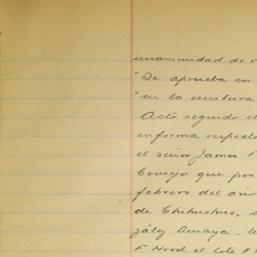 unanimidad de v
"De aprueba en
"en la escritura
Acto seguido el
informa respecto
el señor James F
Consejo que por
febrero del año
de Chihuahua, a
zález Amaya. le
F. Hord el lote #